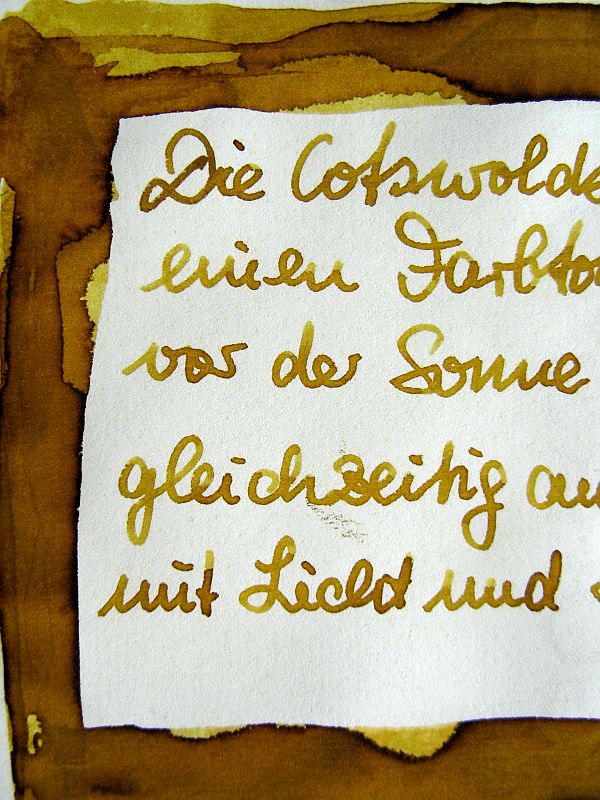 Die Cotswolds
einen Farbto
vor der Sonne
gleichzeitig au
mit Licht und